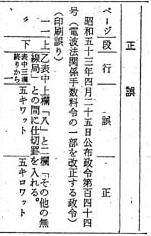 正誤
ページ 段 行 誤 正
昭和五十三年四月二十五日公布政令第百四十四
号(電波法関係手数料令の一部を改正する政令)
(印刷誤り)
一一 上 乙表中上欄「八」と二欄「その他の無
線局」との間に仕切罫を入れる。
〃 下 表中三欄終りから一 五キワット 五キロワット